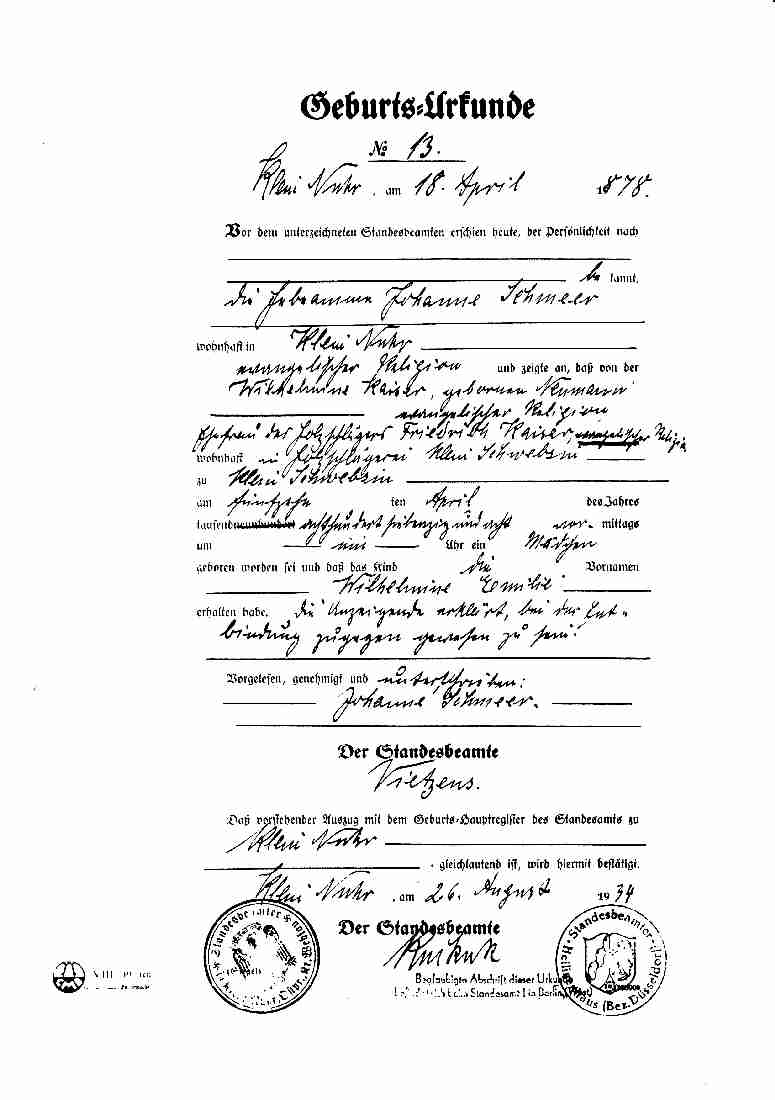 Geburts-Urkunde
No 13.
Klein Nuhr, am 18. April 1878.
Vor dem unterzeichneten Standesbeamten erschien heute, der Persönlichkeit nach
be kannt,
die Hebeamme Johanne Schmeer
wohnhaft in Klein Nuhr
evangelischer Religion und zeigte an, daß von der
Wilhelmine Kaiser, gebornen Neumann
evangelischer Religion
Ehefrau des Holzschlägers Friedrich Kaiser, evangelischer Religion
wohnhaft in Holzschlägerei Klein Schwebzin
zu Klein Schwebzin
am fünfzehn ten April des Jahres
tausend neunhundert achthundert siebenzig und acht vor- mittags
um ein Uhr ein Mädchen
geboren worden sei und daß das Kind die Vornamen
Wilhelmine Emilie
erhalten habe. die Anzeigende erklärt, bei der Ent-
bindung zugegen gewesen zu sein.
Vorgelesen, genehmigt und unterschrieben:
Johanne Schmeer.
Der Standesbeamte
Vietzens.
Daß vorstehender Auszug mit dem Geburts-Hauptregister des Standesamts zu
Klein Nuhr
gleichlautend ist, wird hiermit bestätigt.
Klein Nuhr, am 26. August 1934
Der Standesbeamte
Beglaubigte Abschrift dieser Urkun
Standesamt I in Berlin
Standesbeamter
Standesbeamter (Bez. Düsseldorf)